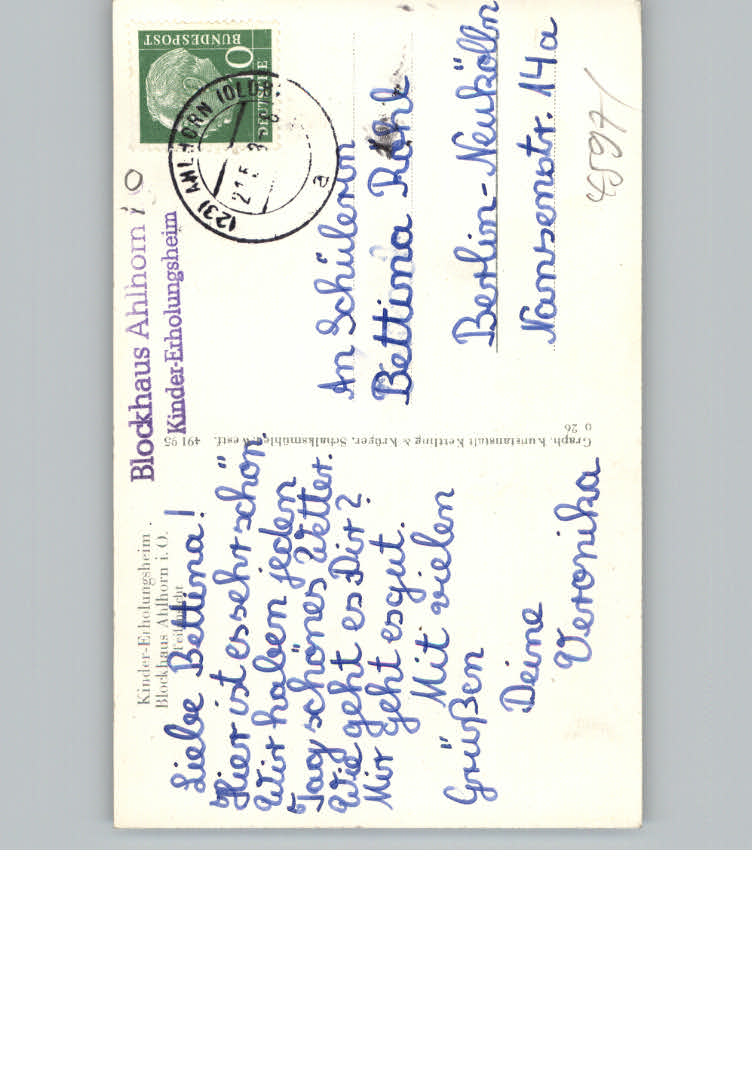 Kinder-Erholungsheim
Blockhaus Ahlhorn i. O.
Liebe Bettina!
Hier ist es sehr schön.
Wir haben jeden
Tag schönes Wetter.
Wie geht es Dir?
Mir geht es gut.
Mit vielen
Grüßen
Deine
Veronika
Graph. Kunstanstalt Kettling & Krüger, Schalksmühle, Westf. 491 95
o 26
Blockhaus Ahlhorn i O
Kinder-Erholungsheim
DEUTSCHE
BUNDESPOST
(23) AHLHORN (OLDB)
a
An Schülerin
Bettina
Berlin-Neukölln
Nansenstr. 14a
4597